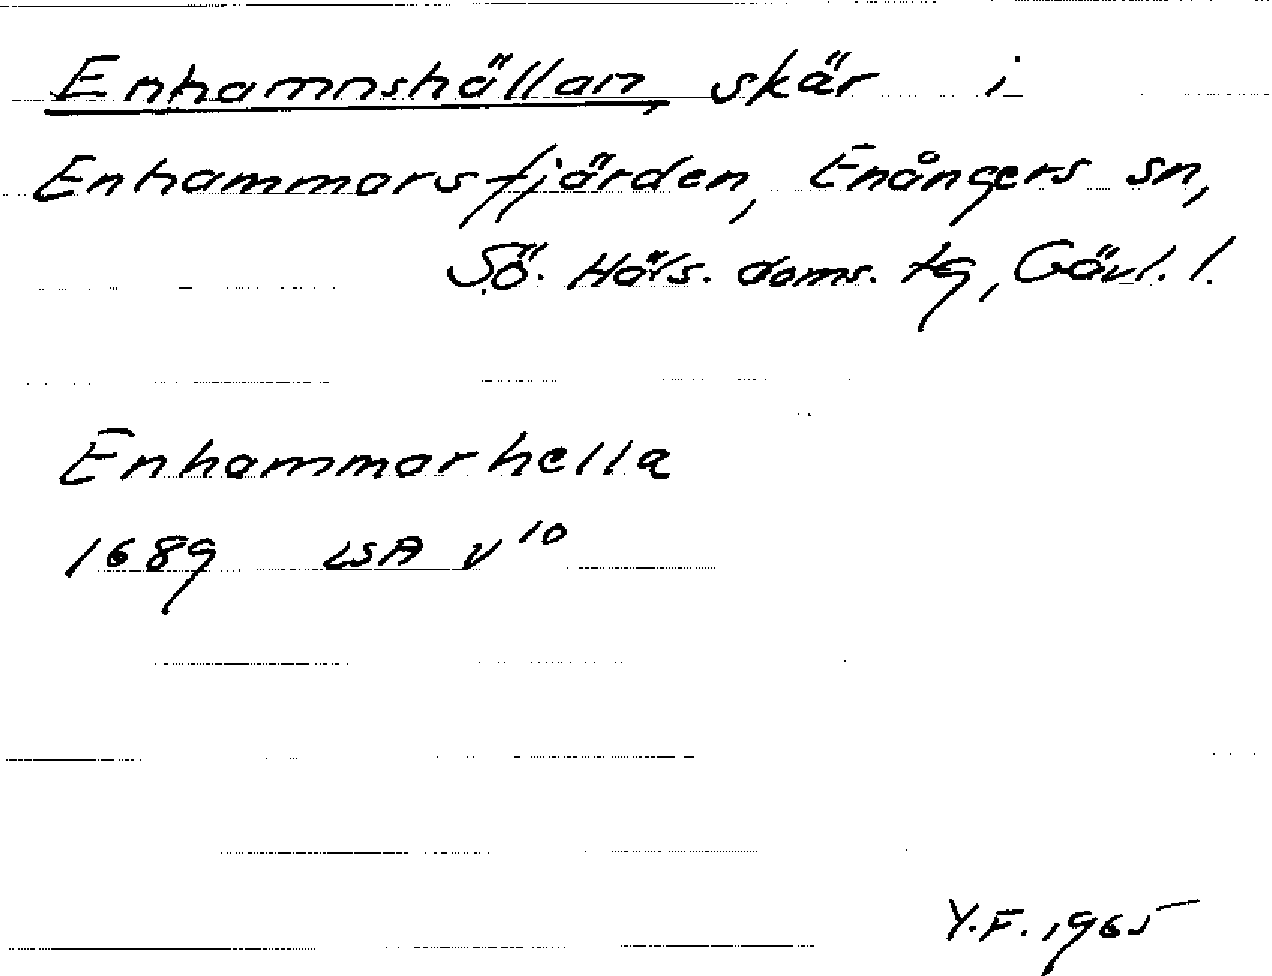 Enhamnshällan, skär i
Enhammarsfjärden, Enångers sn,
Sö. Häls. doms. tg, Gävl. l.
Enhammarhella
1689 LSA v¹⁰
Y.F. 1965